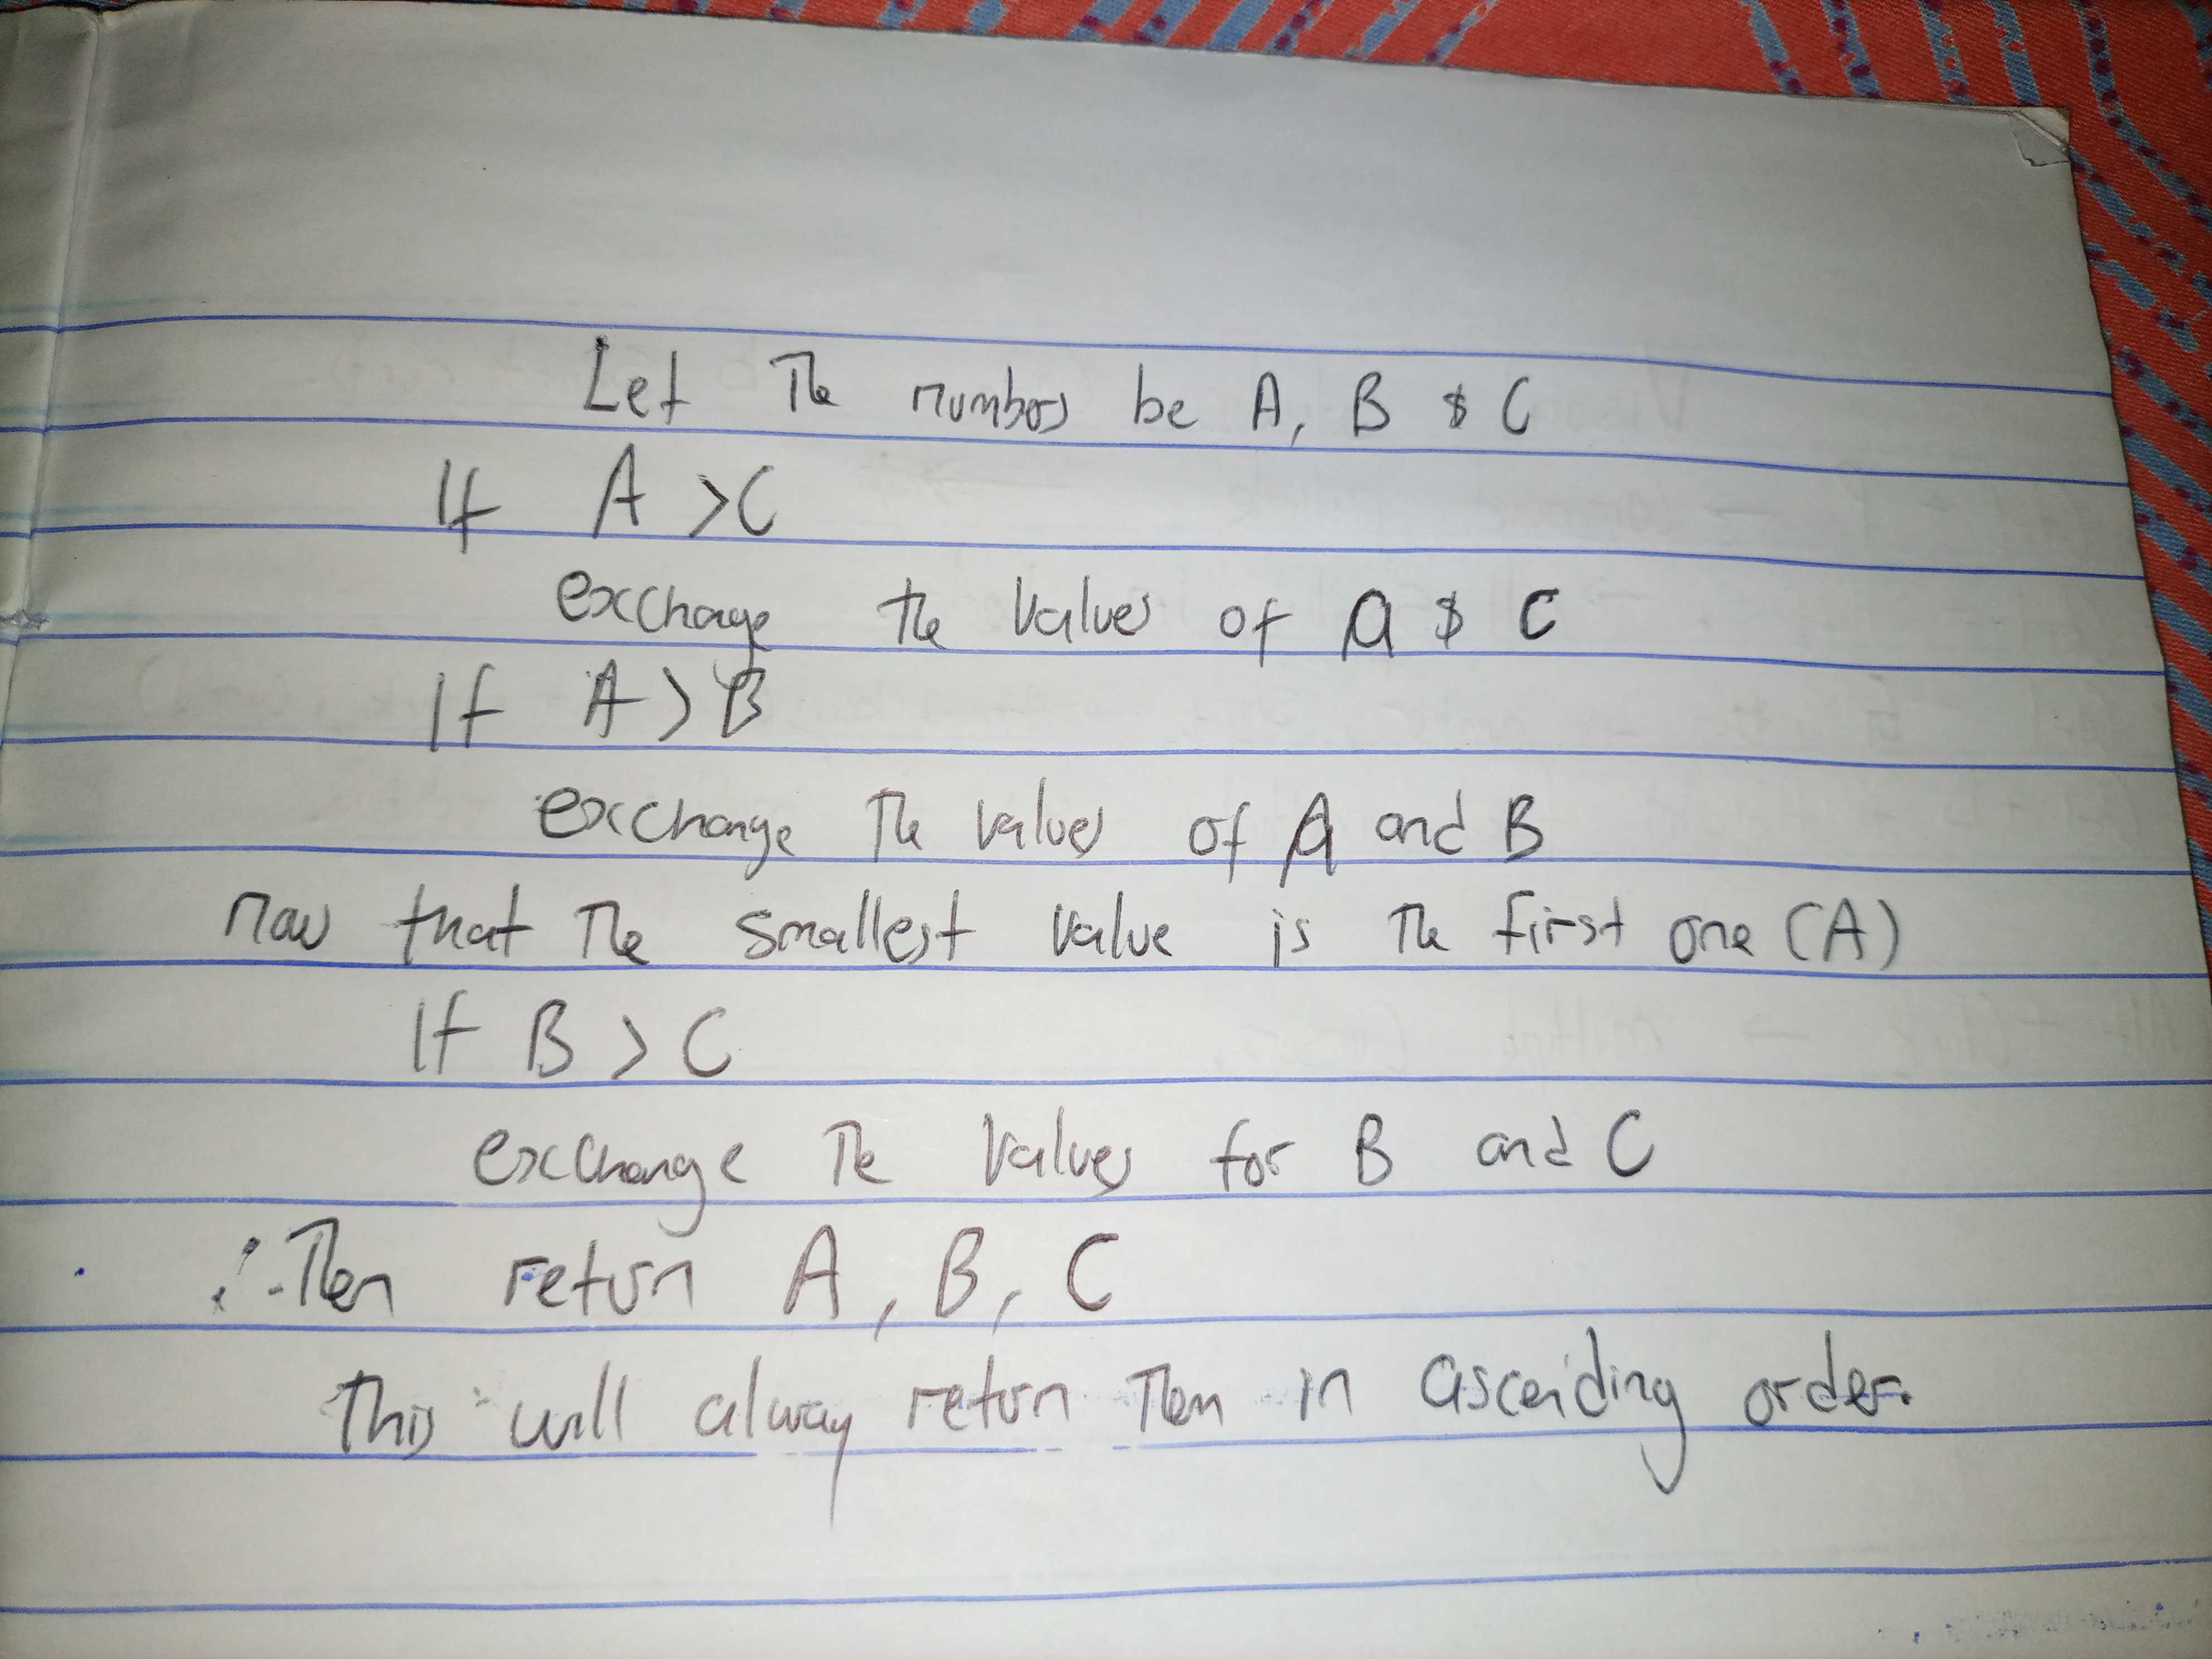 Let The numbers be A, B & C
If A > C
exchange the values of A & C
If A > B
exchange The values of A and B
now that The smallest value is The first one (A)
If B > C
exchange The values for B and C
∴ Then return A, B, C
This will alway return Them in ascending order.